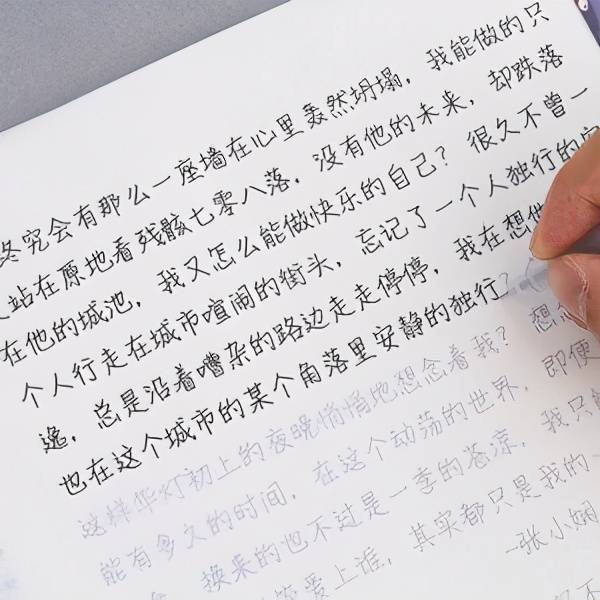 终究会有那么一座墙在心里轰然坍塌，我能做的只
站在原地看残骸七零八落，没有他的未来，却跌落
在他的城池，我又怎么能做快乐的自己？很久不曾一
个人行走在城市喧闹的街头，忘记了一个人独行的
逸，总是沿着嘈杂的路边走走停停，我在想他
也在这个城市的某个角落里安静的独行？
这样华灯初上的夜晚悄悄地想念着我？想念
能有多久的时间，在这个动荡的世界，即便
换来的也不过是一季的苍凉，我只
爱上谁，其实都只是我的一
-张小娴